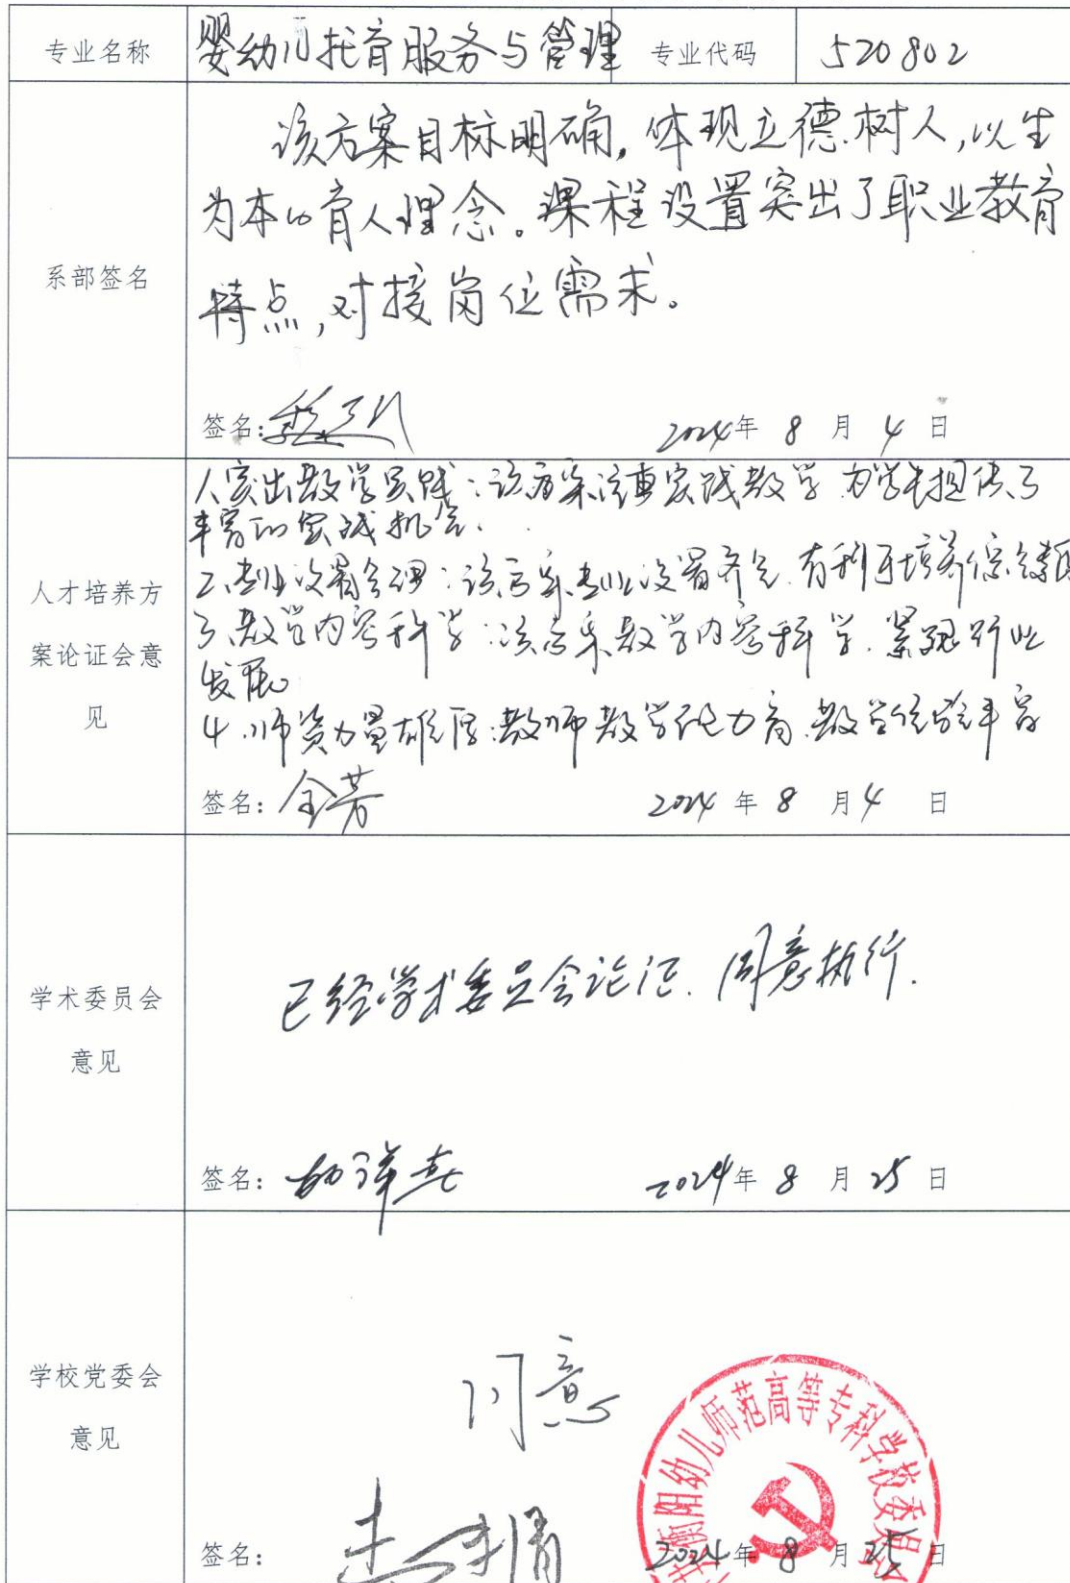 专业名称 婴幼儿托育服务与管理 专业代码 520802
该方案目标明确,体现立德树人,以生
为本的育人理念。课程设置突出了职业教育
系部签名
特点,对接岗位需求。
签名: 2024年 8 月 4 日
人才培养方
案论证会意
见
1.突出教学实践:该方案注重实践教学,为学生提供了
丰富的实践机会.
2.专业设置合理:该方案专业设置齐全.有利于培养综合
3.教学内容科学:该方案教学内容科学.紧跟行业
发展
4.师资力量雄厚:教师教学能力高.教学经验丰富
签名:全芳 2024 年 8 月 4 日
学术委员会
意见
已经学术委员会论证.同意执行.
签名: 2024年 8 月 25 日
学校党委会
意见
同意
衡阳幼儿师范高等专科学校委员会
签名: 2024年 8 月 25 日